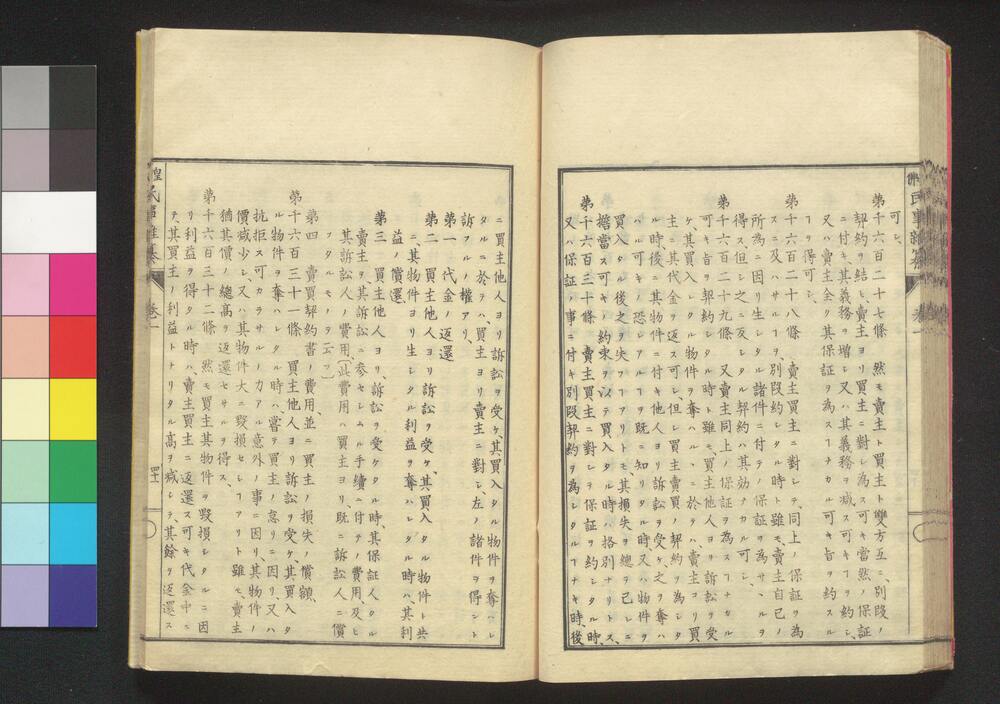 可シ、
第千六百二十七條　然モ賣主ト買主ト雙方互ニ、別段ノ
契約ヲ結ヒ、賣主ヨリ買主ニ對シテ爲ス可キ當然ノ保證
ニ付キ、其義務ヲ增シ又ハ其義務ヲ減ス可キヿヲ約シ、
又ハ賣主全ク其保証ヲ為スヿナカル可キ旨ヲ約スル
ヿヲ得可シ、
第千六百二十八條　賣主買主ニ對シテ、同上ノ保証ヲ為
スニ及ハサルヿヲ、別段約シタル時ト雖モ、賣主自己ノ
所為ニ因リ生シタル諸件ニ付テノ保証ヲ為サヽルヲ
得ス、但シ之ニ反シタル契約ハ其効ナカル可シ、
第千六百二十九條　又賣主同上ノ保証ヲ為スヿナカル
可キ旨ヲ契約シタル時ト雖モ、買主他人ヨリ訴訟ヲ受
ケ、其買入レタル物件ヲ奪ハルヽニ於テハ、賣主ヨリ買
主ニ其代金ヲ返ス可シ、但シ買主賣買ノ契約ヲ為シタ
ル時、後ニ其物件ニ付キ他人ヨリ訴訟ヲ受ケ、之ヲ奪ハ
ル可キノ恐レアルヿヲ既ニ知リタル時、又ハ物件ヲ
買入タル後之ヲ失フヿアリトモ、其損失ヲ總テ己レニ
擔當ス可キノ約束ヲ以テ買入タル時ハ、格別ナリトス、
第千六百三十條　賣主買主ニ對シテ保証ヲ約シタル時、
又ハ保証ノ事ニ付キ別段契約ヲ為シタルヿナキ時、後
ニ買主他人ヨリ訴訟ヲ受ケ、其買入タル物件ヲ奪ハレ
タルニ於テハ、買主ヨリ賣主ニ對シ、左ノ諸件ヲ得ント
訴フルノ權アリ、
第一　代金ノ返還
第二　買主他人ヨリ訴訟ヲ受ケ、其買入タル物件ト共
ニ、其物件ヨリ生シタル利益ヲ奪ハレタル時ハ、其利
益ノ償還
第三　買主他人ヨリ、訴訟ヲ受ケタル時、其保証人タル
賣主ヲ其訴訟ニ参セシムル手續ニ付テノ費用及ヒ
其訴訟人ノ費用、〔此費用ハ買主ヨリ既ニ訴訟人ニ償
フタルモノヲ云フ〕
第四　賣買契約書ノ費用並ニ買主ノ損失ノ償額、
第千六百三十一條　買主他人ヨリ訴訟ヲ受ケ、其買入タ
ル物件ヲ奪ハレタル時ハ、嘗テ買主ノ怠リニ因リ、又ハ
抗拒ス可カラサルノ力アル意外ノ事ニ因リ、其物件ノ
價減少シ、又ハ其物件大ニ毀損セシヿアリト雖モ、賣主
猶其價ノ總高ヲ返還セサルヲ得ス、
第千六百三十二條　然モ買主其物件ヲ毀損シタルニ因
リ利益ヲ得タル時ハ、賣主買主ニ返還ス可キ代金中ニ
テ、其買主ノ利益トナリタル高ヲ減シテ、其餘ヲ返還ス
卷一